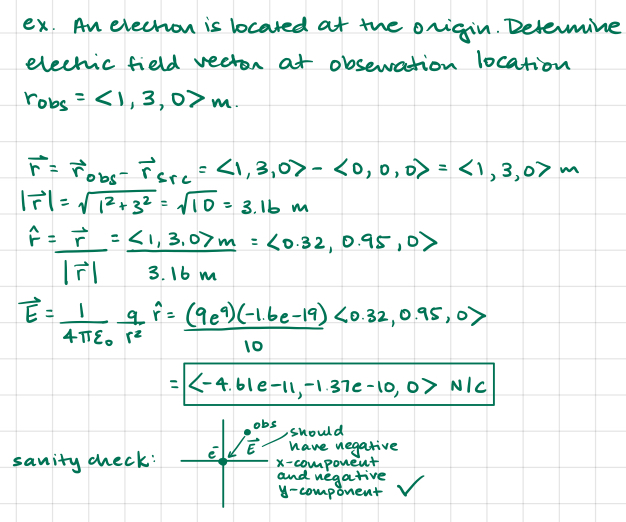 ex. An electron is located at the origin. Determine
electric field vector at observation location
r_obs = <1, 3, 0> m.
r⃗ = r⃗_obs - r⃗_src = <1, 3, 0> - <0, 0, 0> = <1, 3, 0> m
|r⃗| = √(1² + 3²) = √10 = 3.16 m
r̂ = r⃗ / |r⃗| = <1, 3, 0> m / 3.16 m = <0.32, 0.95, 0>
E⃗ = 1/(4πε₀) q/r² r̂ = (9e9)(-1.6e-19)/10 <0.32, 0.95, 0>
= <-4.61e-11, -1.37e-10, 0> N/C
sanity check:
obs
ē
E⃗
should
have negative
x-component
and negative
y-component ✓